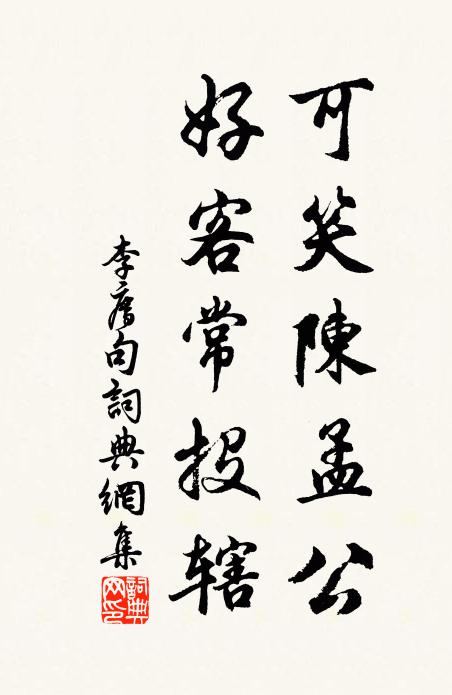 可笑陳孟公
好客常投辖
李廌句詞典網集
詞典网印